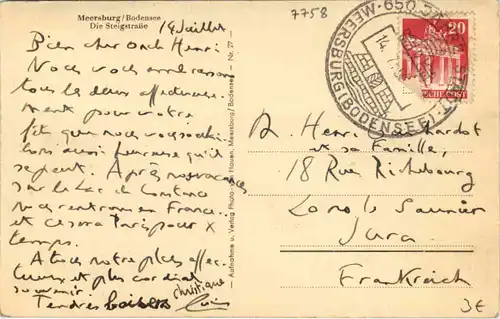 Meersburg/Bodensee
Die Steigstraße
14 Juillet
Bien cher oncle Henri
Nous vous embrassons
tous les deux affectueuse-
ment pour votre
fête que nous vous souhai-
tons aussi heureuse qu'il
se peut. Après nos vacances
sur le Lac de Constance
nous rentrons en France
et ce sera Paris pour X
temps.
A tous notre plus affec-
tueux et plus cordial
souvenir
Tendres baisers
christiane
Aufnahme u. Verlag Photo- Haven, Meersburg/Bodensee - Nr. 27 -
7758
MEERSBURG (BODENSEE)
650 JAHRE STADT
14.
20
DEUTSCHE POST
M. Henri
et sa Famille,
18 Rue Richebourg
Lons le Saunier
Jura
Frankreich
3€